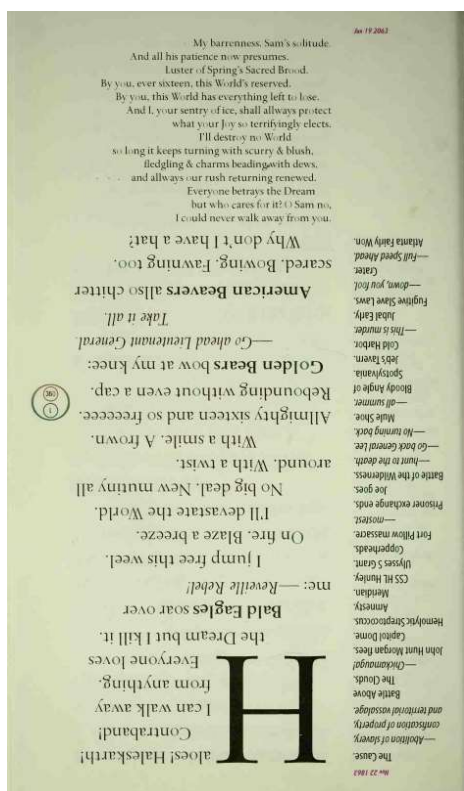 Jan 19 2063
My barrenness, Sam's solitude.
And all his patience now presumes.
Luster of Spring's Sacred Brood.
By you, ever sixteen, this World's reserved.
By you, this World has everything left to lose.
And I, your sentry of ice, shall allways protect
what your Joy so terrifyingly elects.
I'll destroy no World
so long it keeps turning with scurry & blush,
fledgling & charms beading with dews,
and allways our rush returning renewed.
Everyone betrays the Dream
but who cares for it? O Sam no,
I could never walk away from you.
Haloes! Haleskarth!
Contraband!
I can walk away
from anything.
Everyone loves
the Dream but I kill it.
Bald Eagles soar over
me: —Reveille Rebel!
I jump free this weel.
On fire. Blaze a breeze.
I'll devastate the World.
No big deal. New mutiny all
around. With a twist.
With a smile. A frown.
Allmighty sixteen and so freeeeee.
Rebounding without even a cap.
Golden Bears bow at my knee:
—Go ahead Lieutenant General.
Take it all.
American Beavers allso chitter
scared. Bowing. Fawning too.
Why don't I have a hat?
1
360
Nov 22 1863
The Cause.
—Abolition of slavery,
confiscation of property,
and territorial vassalage.
Battle Above
The Clouds.
—Chickamauga!
John Hunt Morgan flees.
Capitol Dome.
Hemolytic Streptococcus
Amnesty.
Meridian.
CSS HL Hunley.
Ulysses S Grant.
Copperheads.
Fort Pillow massacre.
—mostest.
Prisoner exchange ends.
Joe goes.
Battle of the Wilderness.
—hunt to the death.
—Go back General Lee.
—No turning back.
Mule Shoe.
—all summer.
Bloody Angle of
Spotsylvania.
Jeb's Tavern.
Cold Harbor.
—This is murder.
Jubal Early.
Fugitive Slave Laws.
—down, you fool.
Crater.
—Full Speed Ahead.
Atlanta Fairly Won.